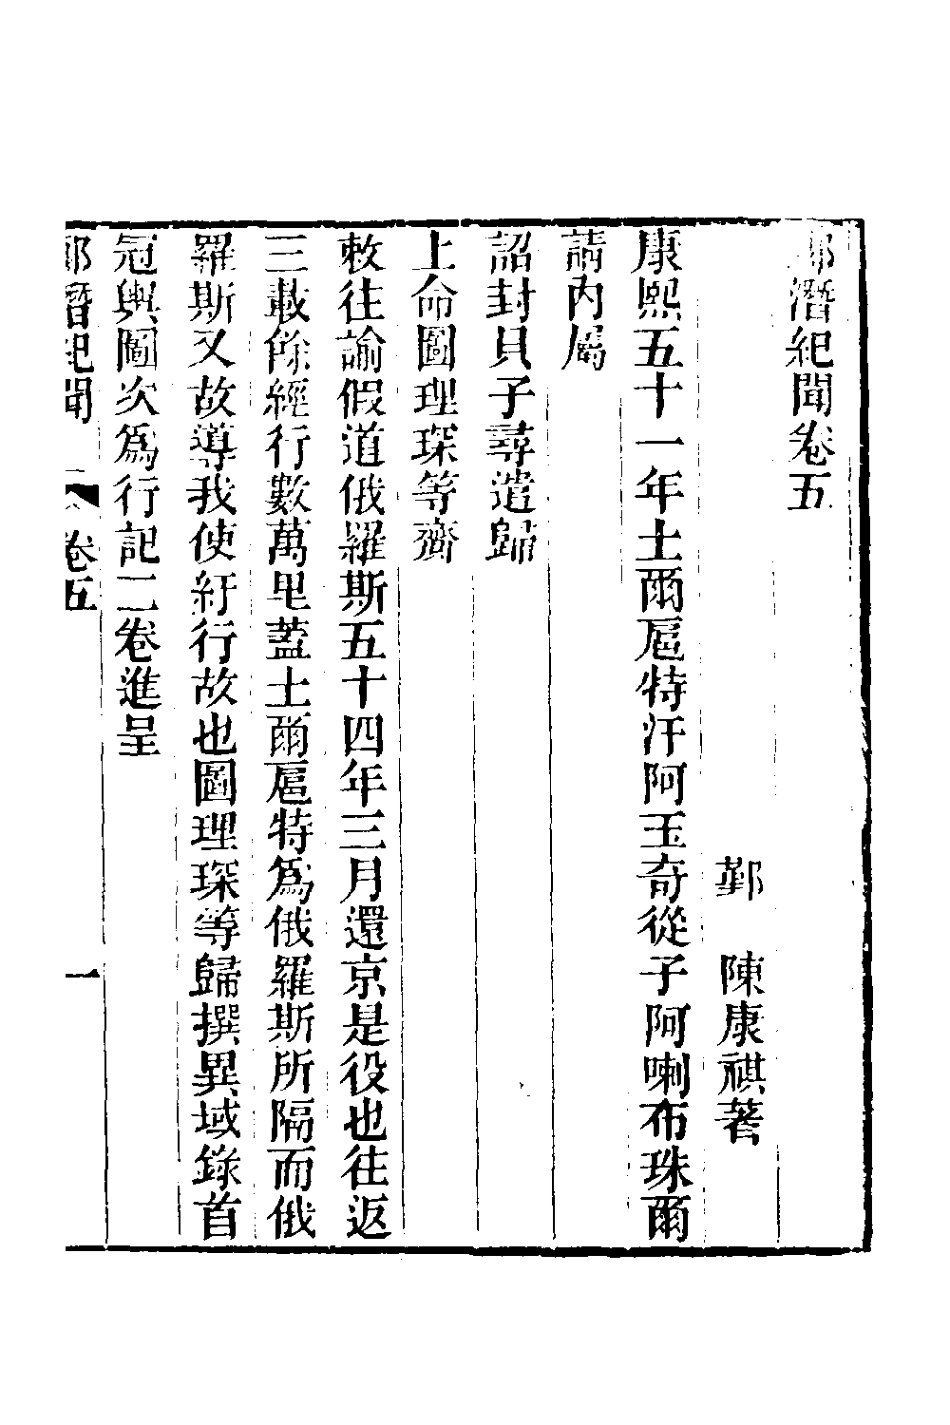 郎潛紀聞卷五
鄞　陳康祺著
康熙五十一年土爾扈特汗阿玉奇從子阿喇布珠爾
請內屬
詔封貝子尋遣歸
上命圖理琛等齎
敕往諭假道俄羅斯五十四年三月還京是役也往返
三載餘經行數萬里蓋土爾扈特爲俄羅斯所隔而俄
羅斯又故導我使紆行故也圖理琛等歸撰異域錄首
冠輿圖次爲行記二卷進呈
郎潛紀聞　卷五　一